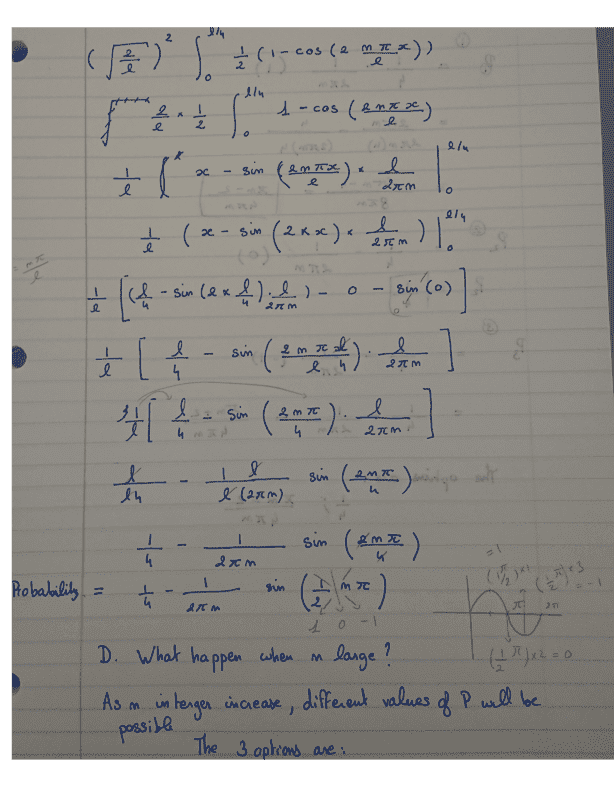 ( √(2/l) )² ∫₀^(l/4) 1/2 (1 - cos (2 nπx/l))
2/l × 1/2 ∫₀^(l/4) 1 - cos (2nπx/l)
1/l [ x - sin (2nπx/l) × l/2πn |₀^(l/4)
1/l ( x - sin (2kx) × l/2πn ) |₀^(l/4)
= nπ/l
1/l [ (l/4 - sin (2k l/4) · l/2πn) - 0 - sin (0) ]
1/l [ l/4 - sin (2nπl/l4) · l/2πn ]
1/l [ l/4 - sin (2nπ/4) · l/2πn ]
l/l4 - 1 l/l(2πn) sin (2nπ/4)
1/4 - 1/2πn sin (2nπ/4)
Probability = 1/4 - 1/2πn sin (1/2 nπ)
1 0 -1
= 1
(1/2 π)×1
(1/2 π)×3 = -1
π 2π
(1/2 π)×2 = 0
D. What happen when n large?
As n interger increase, different values of P will be
possible
The 3 options are: